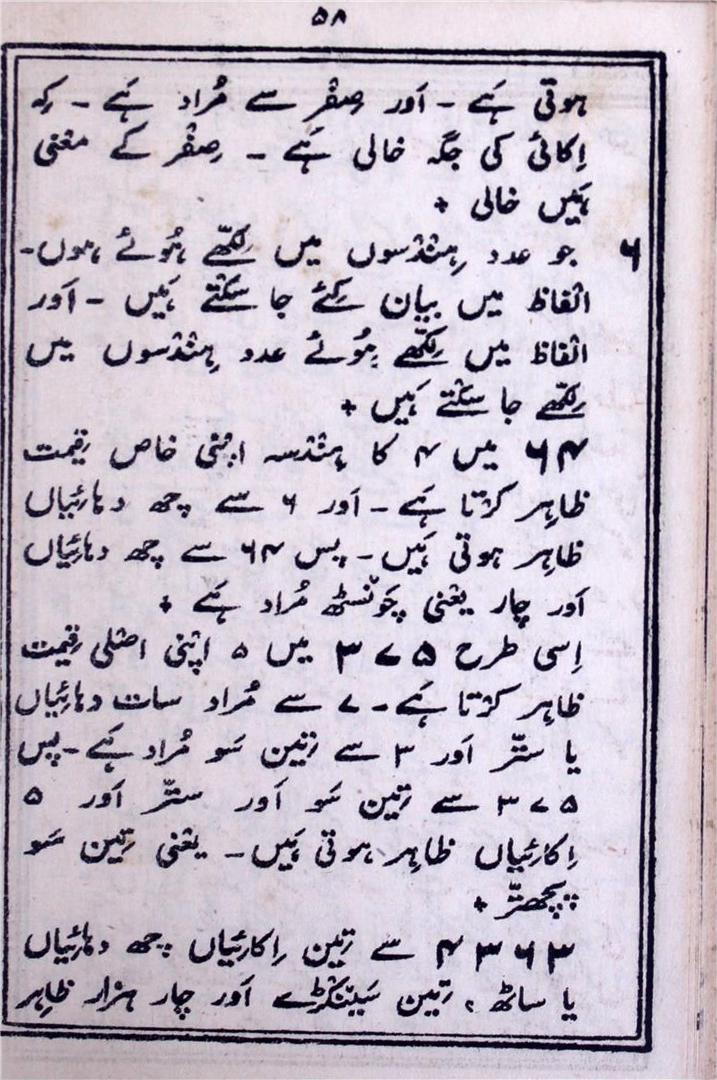 ۵۸
ہوتی ہَے - اَور صِفْر سے مُراد ہَے - کہ
اِکائی کی جگہ خالی ہَے - صِفْر کے معْنی
ہَیں خالی +
۶ جو عدد ہِنْدْسوں میں لِکھّے ہُوئے ہوں-
الْفاظ میں بیان کِئے جا سکْتے ہَیں - اَور
الْفاظ میں لِکھّے ہُوئے عدد ہِنْدْسوں میں
لِکھّے جا سکْتے ہَیں +
۶۴ میں ۴ کا ہِنْدسہ اپْنی خاص قِیمت
ظاہِر کرْتا ہَے - اَور ۶ سے چھ دہائِیاں
ظاہِر ہوتی ہَیں - پس ۶۴ سے چھ دہائِیاں
اَور چار یعْنی چَونْسٹھ مُراد ہَے +
اِسی طرح ۳۷۵ میں ۵ اپْنی اصْلی قِیمت
ظاہِر کرْتا ہَے - ۷ سے مُراد سات دہائِیاں
یا ستّر اَور ۳ سے تِین سَو مُراد ہَے - پس
۳۷۵ سے تِین سَو اَور ستّر اَور ۵
اِکائِیاں ظاہِر ہوتی ہَیں - یعْنی تِین سَو
پچھتّر +
۴۳۶۳ سے تِین اِکائِیاں چھ دہائِیاں
یا ساٹھ ، تِین سَینْکڑے اَور چار ہزار ظاہِر